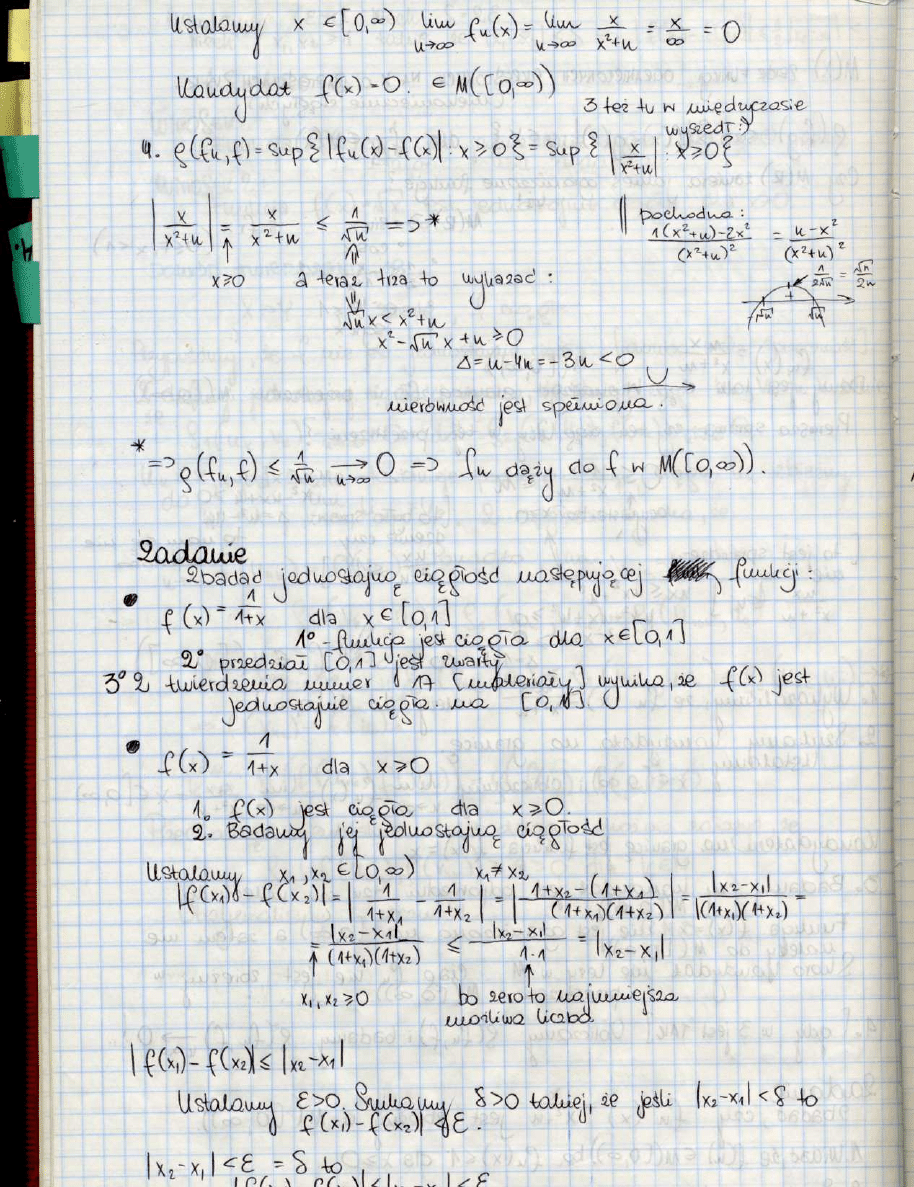 Ustalamy x ∈ [0,∞) lim n→∞ fn(x) = lim n→∞ x/(x²+n) = x/∞ = 0
Kandydat f(x) = 0. ∈ M([0,∞))
3 też tu w międzyczasie
wyszedł :)
4. ρ(fn,f) = sup{|fn(x)-f(x)| : x≥0} = sup{|x/(x²+n)| : x≥0}
|x/(x²+n)| = x/(x²+n) ≤ 1/√n => *
x≥0 a teraz trza to wykazać :
pochodna :
(1(x²+n)-2x²)/(x²+n)² = (n-x²)/(x²+n)²
1/(2√n) = √n/(2n)
-√n + √n
√n x < x²+n
x² - √n x + n ≥ 0
Δ = n-4n = -3n < 0
nierówność jest spełniona.
* => ρ(fn,f) ≤ 1/√n →n→∞ 0 => fn dąży do f w M([0,∞)).
Zadanie
Zbadać jednostajną ciągłość następującej funkcji :
• f(x) = 1/(1+x) dla x∈[0,1]
1° - funkcja jest ciągła dla x∈[0,1]
2° przedział [0,1] jest zwarty
3° Z twierdzenia numer 17 [materiały] wynika, że f(x) jest
jednostajnie ciągła na [0,1]
• f(x) = 1/(1+x) dla x≥0
1. f(x) jest ciągła dla x≥0.
2. Badamy jej jednostajną ciągłość
Ustalamy x₁,x₂ ∈[0,∞) x₁≠x₂
|f(x₁)-f(x₂)| = |1/(1+x₁) - 1/(1+x₂)| = |(1+x₂-(1+x₁))/((1+x₁)(1+x₂))| = |x₂-x₁|/|(1+x₁)(1+x₂)| =
= |x₂-x₁|/((1+x₁)(1+x₂)) ≤ |x₂-x₁|/(1·1) = |x₂-x₁|
x₁,x₂≥0 bo zero to najmniejsza
możliwa liczba
|f(x₁)-f(x₂)| ≤ |x₂-x₁|
Ustalamy ε>0. Szukamy δ>0 takiej, że jeśli |x₂-x₁|<δ to
f(x₁)-f(x₂)| < ε.
|x₂-x₁| < ε = δ to